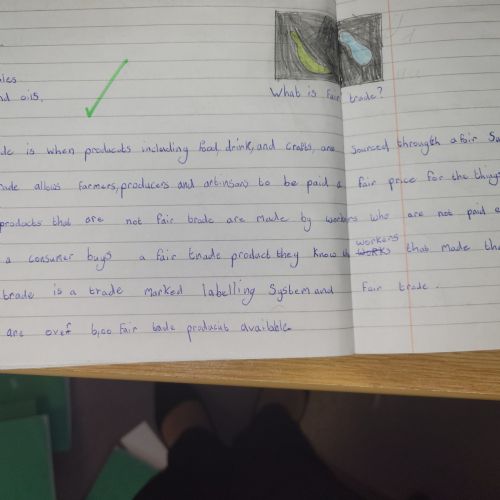 and oils.
What is Fair trade?
is when producots including food, drink, and crafts, are sourced through a fair
allows farmers, producers and artinsans to be paid a fair price for the things
products that are not fair trade are made by workers who are not paid
a consumer buys a fair trade product they know workers that made
trade is a trade marked labelling system and fair trade.
are over 6,00 Fair tade producut available.